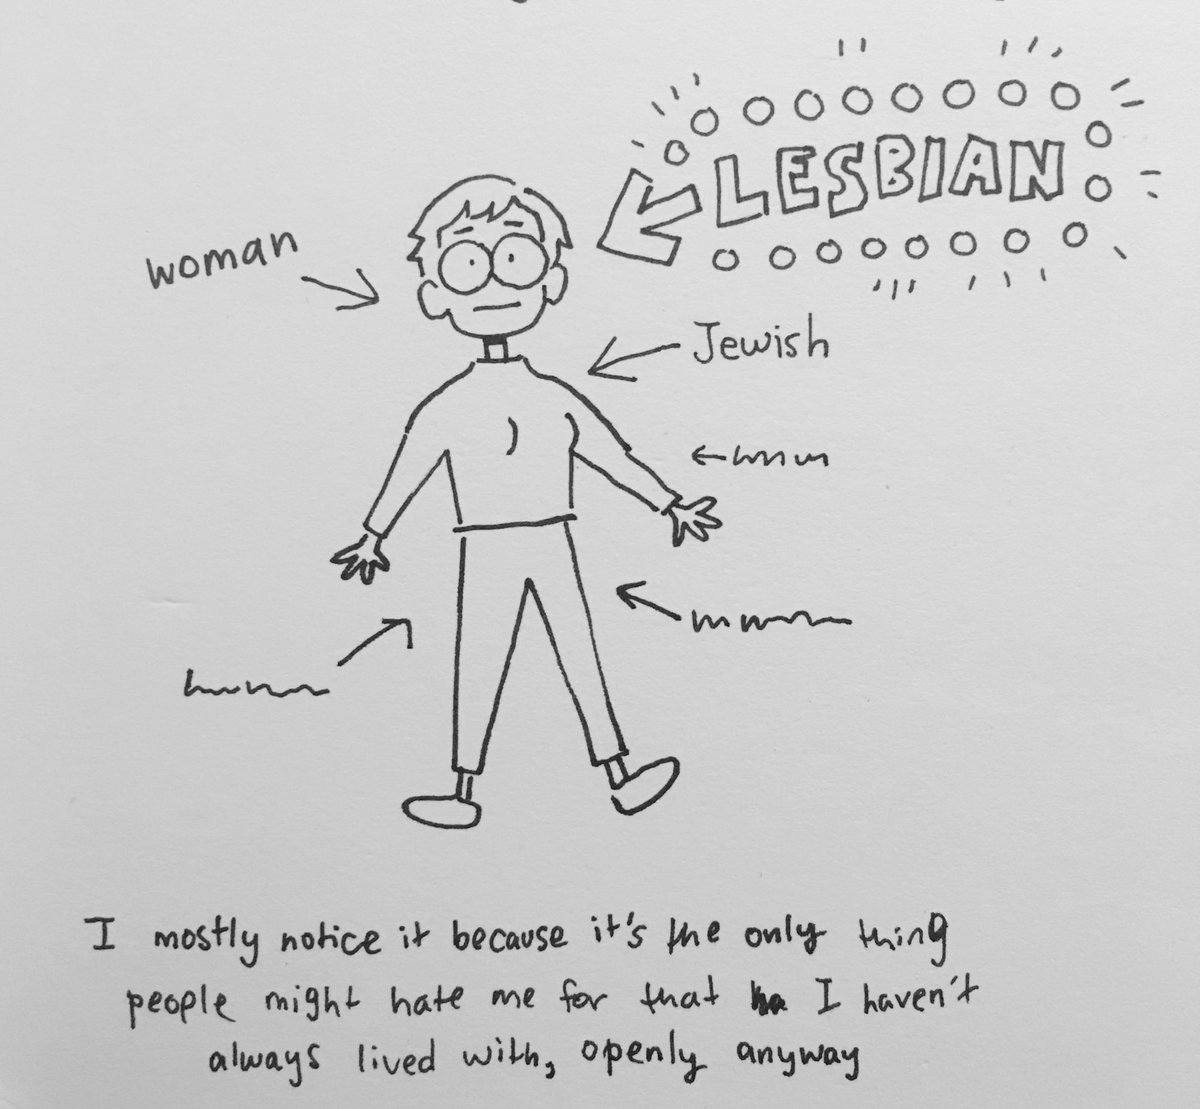 LESBIAN
woman
Jewish
I mostly notice it because it's the only thing
people might hate me for that I haven't
always lived with, openly anyway